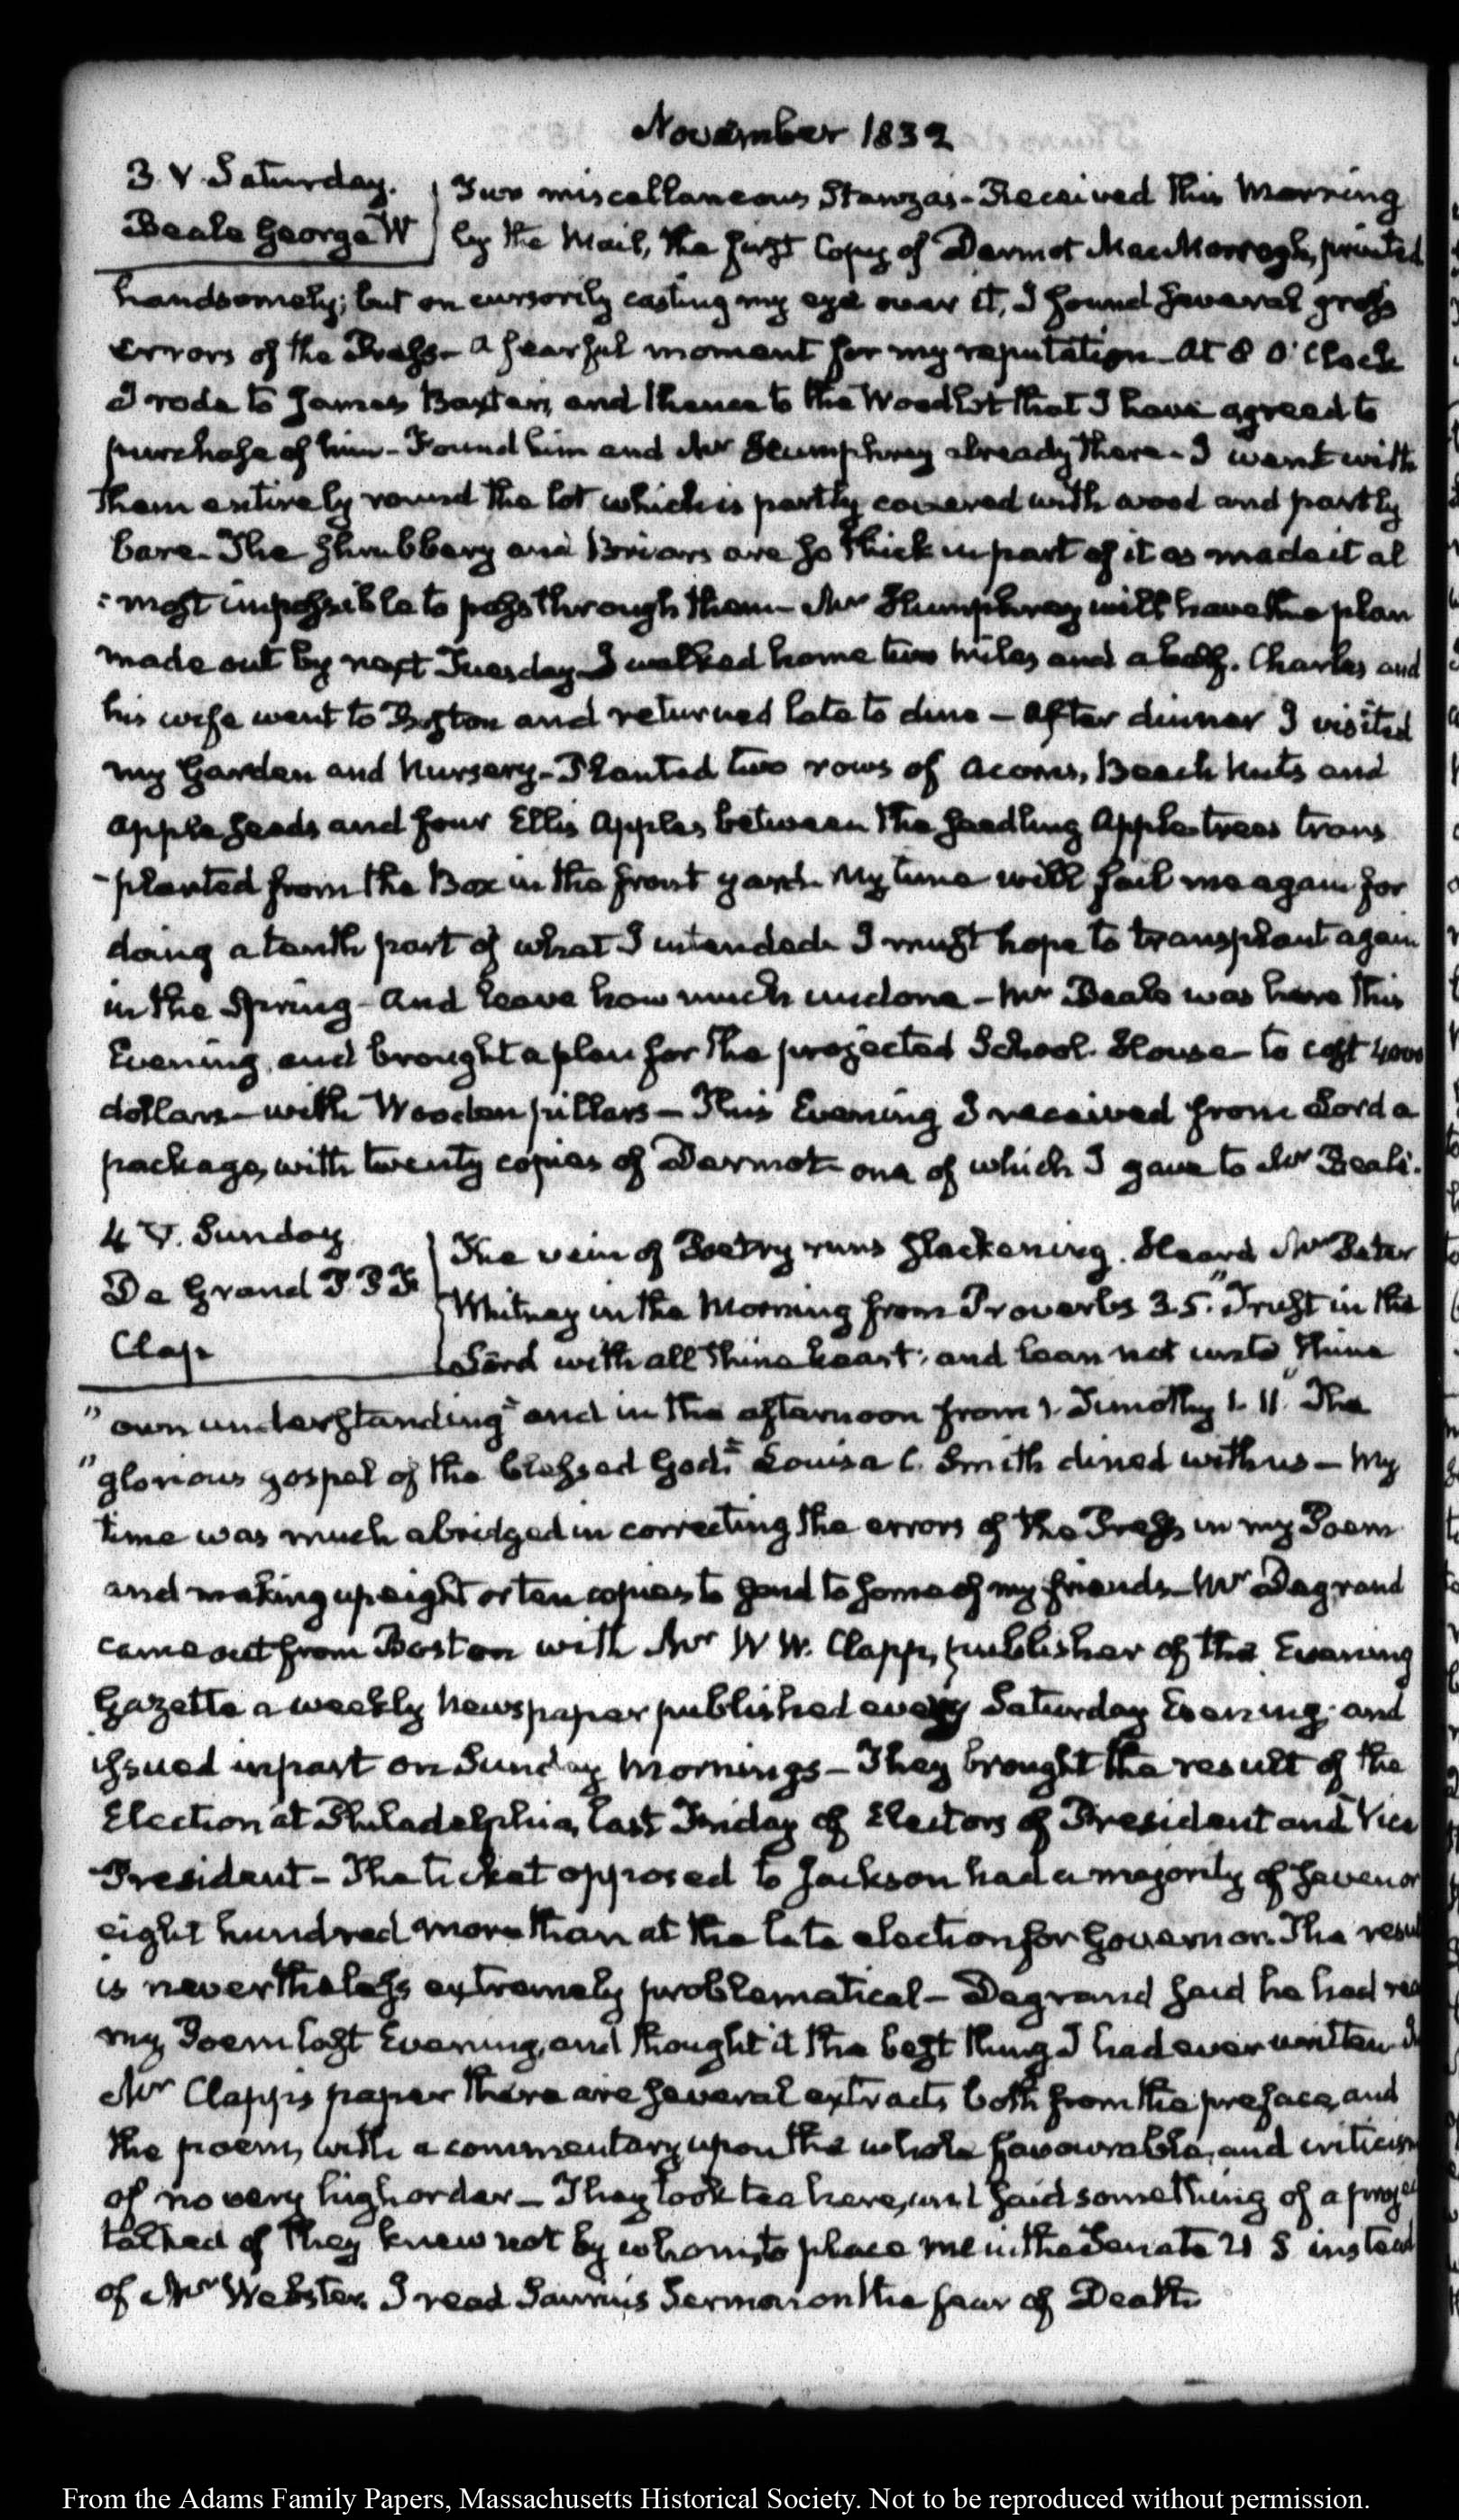 November 1832
3. V. Saturday.
Beale George W
Two miscellaneous Stanzas - Received this Morning
by the Mail, the first Copy of Dermot MacMorrogh, printed
handsomely; but on cursorily casting my eye over it, I found several gross
errors of the Press - a fearful moment for my reputation - At 8 O'Clock
I rode to James Baxter's, and thence to the Wood lot that I have agreed to
purchase of him - Found him and Mr Humphrey already there - I went with
them entirely round the lot which is partly covered with wood and partly
bare - The shrubbery and Briars are so thick in part of it as made it al
:most impossible to pass through them - Mr Humphrey will have the plan
made out by next Tuesday - I walked home two miles and a half. Charles and
his wife went to Boston and returned late to dine - After dinner I visited
my Garden and Nursery - Planted two rows of Acorns, Beach Nuts and
apple seeds and four Ellis Apples between the seedling Apple trees trans
-planted from the Box in the front yard. My time will fail me again for
doing a tenth part of what I intended. I must hope to transplant again
in the Spring - And leave how much undone - Mr Beale was here this
Evening, and brought a plan for the projected School House - to cost 4000
dollars - with Wooden pillars - This Evening I received from Lord a
package, with twenty copies of Dermot - one of which I gave to Mr Beale.
4 V. Sunday
De Grand P. P. F.
Clap
The vein of Poetry runs slackening. Heard Mr Peter
Whitney in the Morning from Proverbs 3. 5. "Trust in the
Lord with all thine heart; and lean not unto thine
"own understanding" and in the afternoon from 1. Timothy 1. 11 "The
"glorious gospel of the blessed God." Louisa C. Smith dined with us - My
time was much abridged in correcting the errors of the Press in my Poem
and making up eight or ten copies to send to some of my friends - Mr Degrand
came out from Boston with Mr W W. Clapp, publisher of the Evening
Gazette a weekly Newspaper published every Saturday Evening; and
issued in part on Sunday Mornings - They brought the result of the
Election at Philadelphia, last Friday of Electors of President and Vice
President - The ticket opposed to Jackson had a majority of seven or
eight hundred more than at the late election for Governor. The resu
is nevertheless extremely problematical - Degrand said he had rea
my Poem last Evening, and thought it the best thing I had ever written. I
Mr Clapp's paper there are several extracts both from the preface, and
the poem, with a commentary upon the whole favourable, and criticism
of no very high order - They took tea here, and said something of a projec
talked of they knew not by whom, to place me in the Senate U S instead
of Mr Webster. I read Saurin's Sermon on the fear of Death.
From the Adams Family Papers, Massachusetts Historical Society. Not to be reproduced without permission.